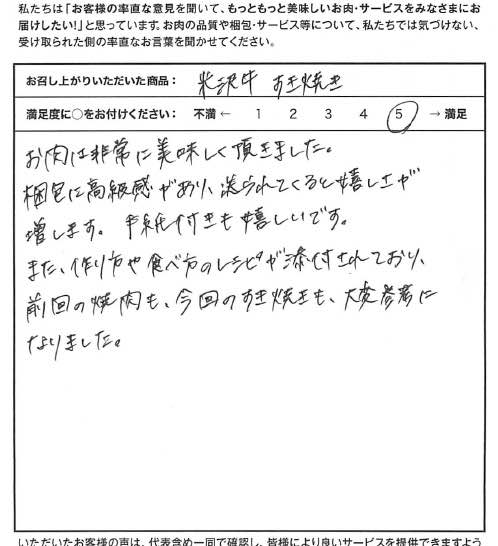 私たちは「お客様の率直な意見を聞いて、もっともっと美味しいお肉・サービスをみなさまにお
届けしたい!」と思っています。お肉の品質や梱包・サービス等について、私たちでは気づけない、
受け取られた側の率直なお言葉を聞かせてください。
お召し上がりいただいた商品： 米沢牛 すき焼き
満足度に○をお付けください： 不満 ← 1 2 3 4 5 → 満足
お肉は非常に美味しく頂きました。
梱包に高級感があり、送られてくると嬉しさが
増します。手紙付きも嬉しいです。
また、作り方や食べ方のレシピが添付されており、
前回の焼肉も、今回のすき焼きも、大変参考に
なりました。
いただいたお客様の声は、代表含め一同で確認し、皆様により良いサービスを提供できますよう